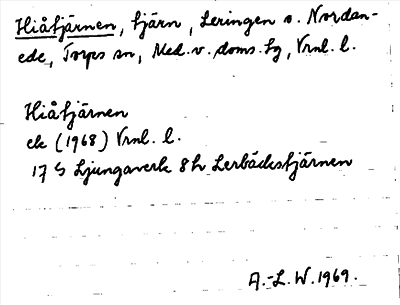 Hiåtjärnen, tjärn, Leringen o. Nordan-
ede, Torps sn, Med. v. doms. tg, Vrnl. l.
Hiåtjärnen
ek (1968) Vrnl. l.
17 G Ljungaverk 8 h Lerbäckstjärnen
A.-L. W. 1969.